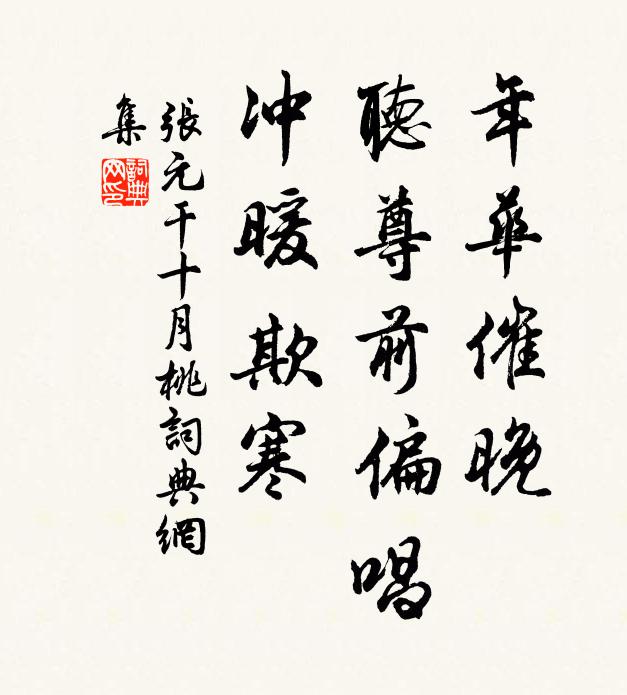 年華催晚
聽尊前偏唱
冲暖欺寒
張元干十月桃詞典網
集
詞典网印